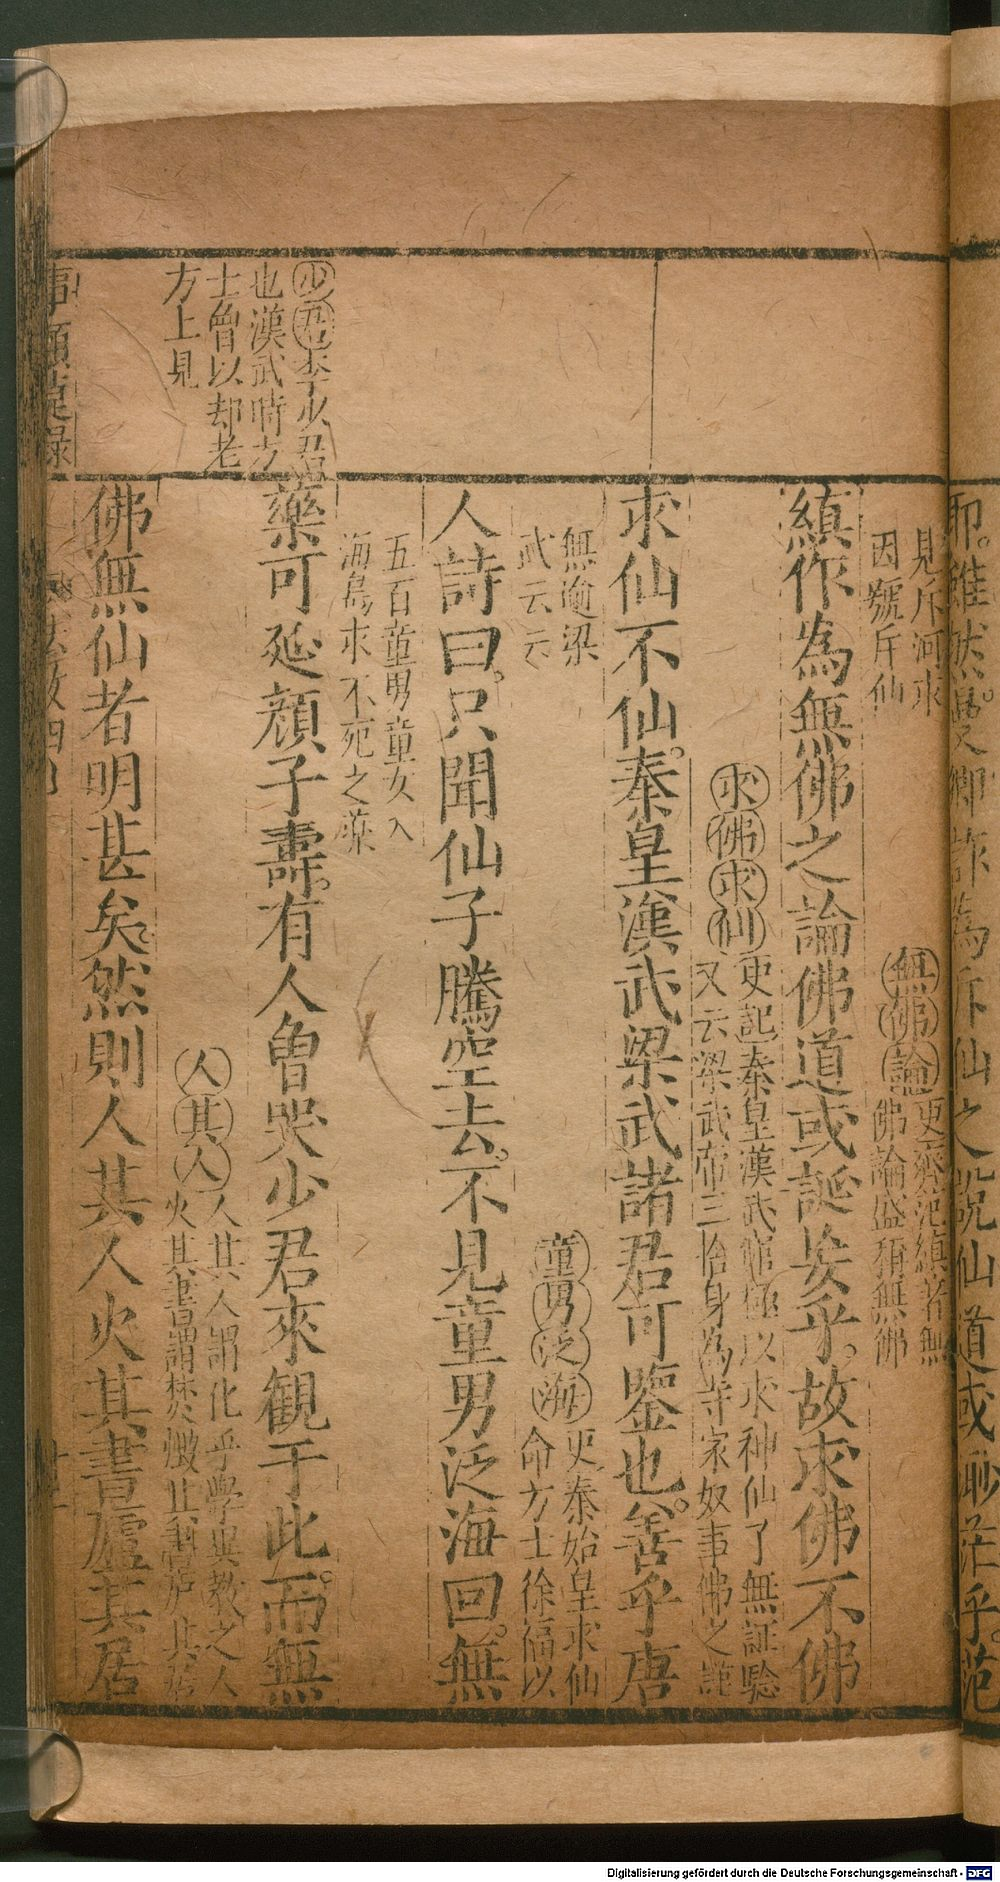 耶。雖然曼卿詐為斥仙之說仙道或渺茫乎。范
見斥河東
因號斥仙
無佛論 史齊范縝著無
佛論盛稱無佛
縝作為無佛之論佛道或誕矣乎。故求佛不佛
求佛求仙 史記秦皇漢武窮極以求神仙了無証驗
又云梁武帝三捨身為寺家奴事佛之謹
求仙不仙。秦皇漢武梁武諸君可鑒也。善乎唐
無逾梁
武云云
童男泛海 史秦始皇求仙
命方士徐福以
人詩曰。只聞仙子騰空去。不見童男泛海回。無
五百童男童女入
海島求不死之藥
少君 李少君
也漢武時方
士曾以却老
方上見
藥可延顔子壽。有人曾哭少君來觀于此。而無
人其人 人其人謂化乎學與教之人
火其書謂焚燬其書廬其居
佛無仙者明甚矣。然則人其人火其書廬其居
Digitalisierung gefördert durch die Deutsche Forschungsgemeinschaft - DFG